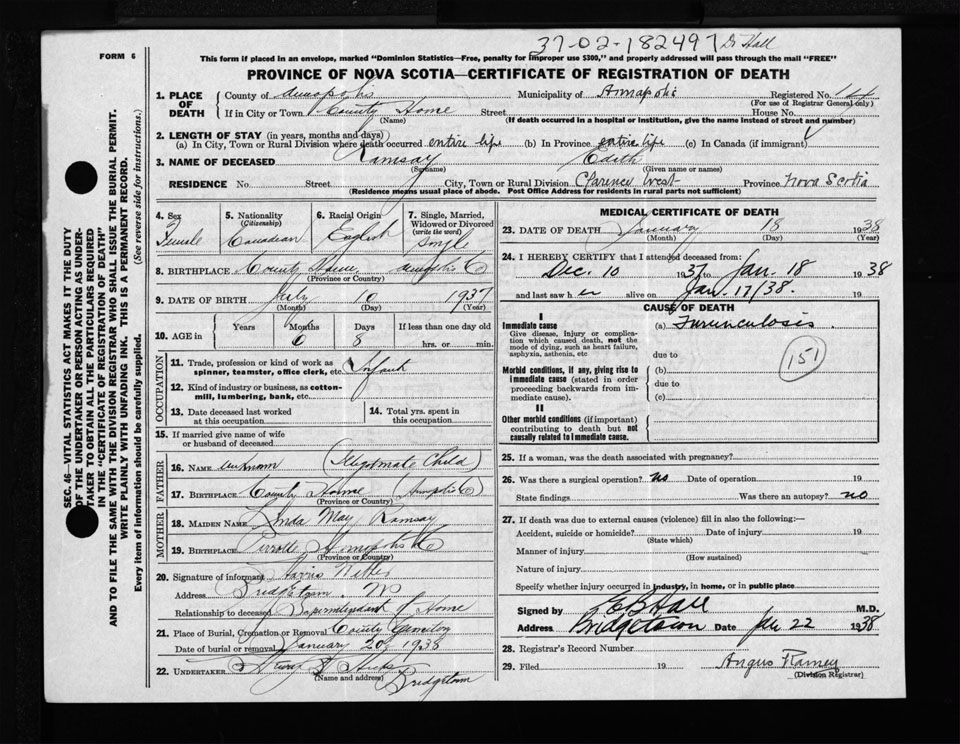 37-02-182497 Dr Hall
FORM 6
This form if placed in an envelope, marked "Dominion Statistics—Free, penalty for improper use $300," and properly addressed will pass through the mail "FREE"
PROVINCE OF NOVA SCOTIA—CERTIFICATE OF REGISTRATION OF DEATH
1. PLACE OF DEATH
County of Annapolis Municipality of Annapolis Registered No. 14
(For use of Registrar General only)
If in City or Town County Home Street House No.
(Name) (If death occurred in a hospital or institution, give the name instead of street and number)
2. LENGTH OF STAY (in years, months and days)
(a) In City, Town or Rural Division where death occurred entire life (b) In Province entire life (c) In Canada (if immigrant)
3. NAME OF DECEASED Ramsay Edith
(Surname) (Given name or names)
RESIDENCE No. Street City, Town or Rural Division Clarence West Province Nova Scotia
(Residence means usual place of abode. Post Office Address for residents in rural parts not sufficient)
SEC. 46—VITAL STATISTICS ACT MAKES IT THE DUTY
OF THE UNDERTAKER OR PERSON ACTING AS UNDER-
TAKER TO OBTAIN ALL THE PARTICULARS REQUIRED
IN THE "CERTIFICATE OF REGISTRATION OF DEATH"
AND TO FILE THE SAME WITH THE DIVISION REGISTRAR WHO SHALL ISSUE THE BURIAL PERMIT.
WRITE PLAINLY WITH UNFADING INK. THIS IS A PERMANENT RECORD.
Every item of information should be carefully supplied. (See reverse side for instructions.)
4. Sex
Female
5. Nationality
(Citizenship)
Canadian
6. Racial Origin
English
7. Single, Married,
Widowed or Divorced
(write the word)
Single
8. BIRTHPLACE County Home Annapolis Co
(Province or Country)
9. DATE OF BIRTH July 10 1937
(Month) (Day) (Year)
10. AGE in Years Months Days If less than one day old
6 8 hrs. or min.
OCCUPATION
11. Trade, profession or kind of work as
spinner, teamster, office clerk, etc. Infant
12. Kind of industry or business, as cotton-
mill, lumbering, bank, etc.
13. Date deceased last worked
at this occupation
14. Total yrs. spent in
this occupation
15. If married give name of wife
or husband of deceased
FATHER
16. NAME unknown (Illegitimate Child)
17. BIRTHPLACE County Home (Annapolis Co)
(Province or Country)
MOTHER
18. MAIDEN NAME Linda May Ramsay
19. BIRTHPLACE Perrotte Annapolis Co
(Province or Country)
20. Signature of informant Harris
Address Bridgetown. NS
Relationship to deceased Superintendant of Home
21. Place of Burial, Cremation or Removal County Cemetery
Date of burial or removal January 20, 1938
22. UNDERTAKER Hicks
(Name and address)
Bridgetown
MEDICAL CERTIFICATE OF DEATH
23. DATE OF DEATH January 18 1938
(Month) (Day) (Year)
24. I HEREBY CERTIFY that I attended deceased from:
Dec. 10 1937 to Jan. 18 1938
and last saw her alive on Jan. 17/38. 19
CAUSE OF DEATH
I
Immediate cause
Give disease, injury or complica-
tion which caused death, not the
mode of dying, such as heart failure,
asphyxia, asthenia, etc
(a) Furunculosis.
due to
151
Morbid conditions, if any, giving rise to
immediate cause (stated in order
proceeding backwards from im-
mediate cause).
(b)
due to
(c)
II
Other morbid conditions (if important)
contributing to death but not
causally related to immediate cause.
25. If a woman, was the death associated with pregnancy?
26. Was there a surgical operation? No Date of operation 19
State findings Was there an autopsy? no
27. If death was due to external causes (violence) fill in also the following:—
Accident, suicide or homicide? Date of injury 19
(State which)
Manner of injury
(How sustained)
Nature of injury
Specify whether injury occurred in industry, in home, or in public place
Signed by E B Hall M.D.
Address Bridgetown Date Jan 22 1938
28. Registrar's Record Number
29. Filed 19 Angus Ramey
(Division Registrar)